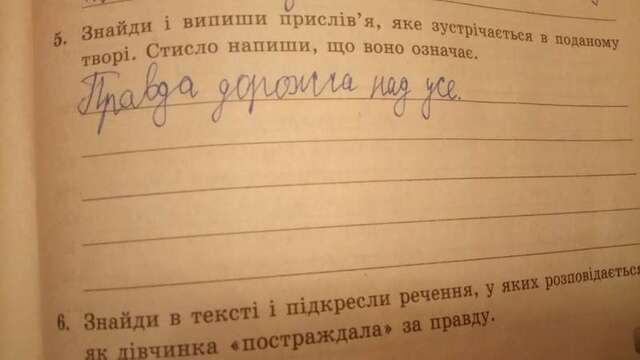 5. Знайди і випиши прислів'я, яке зустрічається в поданому
творі. Стисло напиши, що воно означає.
Правда дорожча над усе.
6. Знайди в тексті і підкресли речення, у яких розповідається,
як дівчинка «постраждала» за правду.